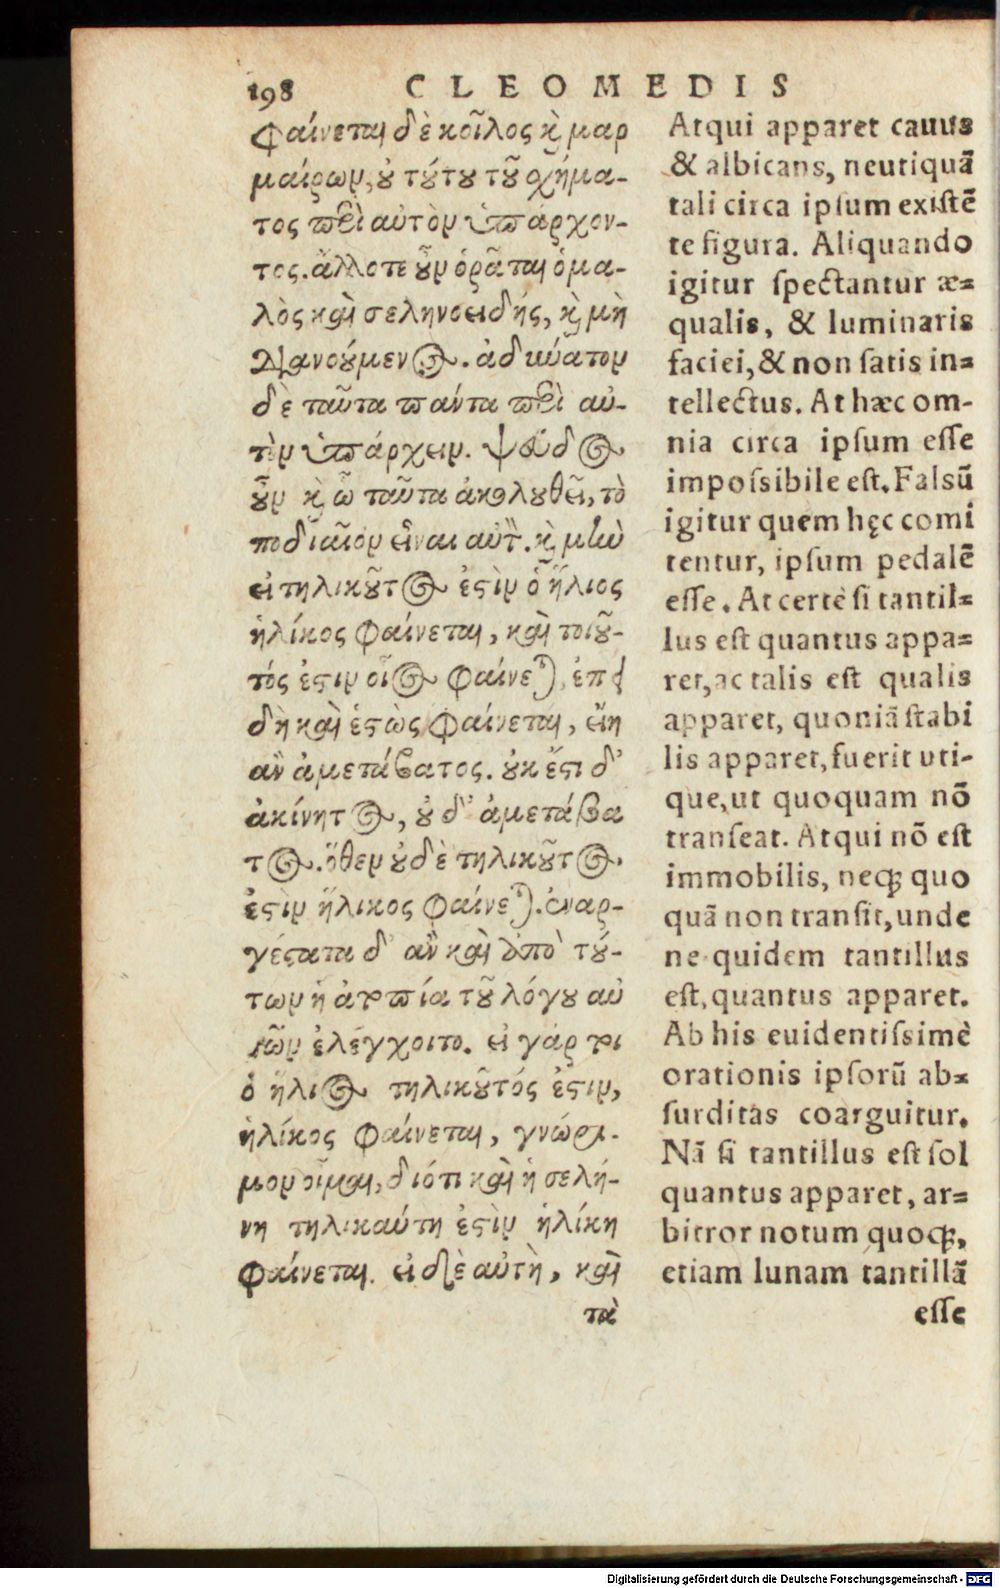 198 CLEOMEDIS
φαίνεται δὲ κοῖλος κỳ μαρ
μαίρων, ȣ̓ τȣ́τȣ τȣ͂ σχήμα-
τος πεὶ αὐτὸν ὑπάρχον-
τος. ἄλλοτε ȣ̓͂ν ὁρᾶται ὁμα-
λὸς καὶ σεληνοειδής, κỳ μὴ
ψανούμενος. ἀδιύατον
δὲ ταῦτα πάντα πεὶ αὐ-
τὸν ὑπάρχειν. ψεῦδος
ȣ̓͂ν κỳ ᾧ ταῦτα ἀκολȣθεῖ, τὸ
ποδιαῖον εἶναι αὐτ. κỳ μὴν
εἰ τηλικȣ͂τος ἐστὶν ὁ ἥλιος
ἡλίκος φαίνεται, καὶ τοιȣ͂-
τός ἐστιν οἷος φαίνε), ἐπεὶ
δὴ καὶ ἑστὼς φαίνεται, εἴη
ἂν ἀμετάβατος. ȣ̓κ ἔστι δ'
ἀκίνητος, ȣ̓δ' ἀμετάβα
τος. ὅθεν ȣ̓δὲ τηλικȣ͂τος
ἐστὶν ἥλικος φαίνε). ἐναρ-
γέστατα δ' ἂν καὶ ἀπὸ τȣ́-
των ἡ ἀτοπία τȣ͂ λόγȣ αὐ
τῶν ἐλέγχοιτο. εἰ γάρ τοι
ὁ ἥλιος τηλικȣ͂τός ἐστιν,
ἡλίκος φαίνεται, γνώρι-
μον οἶμαι, διότι καὶ ἡ σελή-
νη τηλικαύτη ἐστὶν ἡλίκη
φαίνεται. εἰ δὲ αὐτὴ, καὶ
τὰ
Atqui apparet cauus
& albicans, neutiquã
tali circa ipsum existẽ
te figura. Aliquando
igitur spectantur æ=
qualis, & luminaris
faciei, & non satis in=
tellectus. At hæc om-
nia circa ipsum esse
impossibile est. Falsũ
igitur quem hęc comi
tentur, ipsum pedalẽ
esse. At certè si tantil=
lus est quantus appa=
ret, ac talis est qualis
apparet, quoniã stabi
lis apparet, fuerit uti-
que, ut quoquam nõ
transeat. Atqui nõ est
immobilis, neq; quo
quã non transit, unde
ne quidem tantillus
est, quantus apparet.
Ab his euidentissimè
orationis ipsorũ ab=
surditas coarguitur.
Nã si tantillus est sol
quantus apparet, ar=
bitror notum quoq;,
etiam lunam tantillã
esse
Digitalisierung gefördert durch die Deutsche Forschungsgemeinschaft - DFG